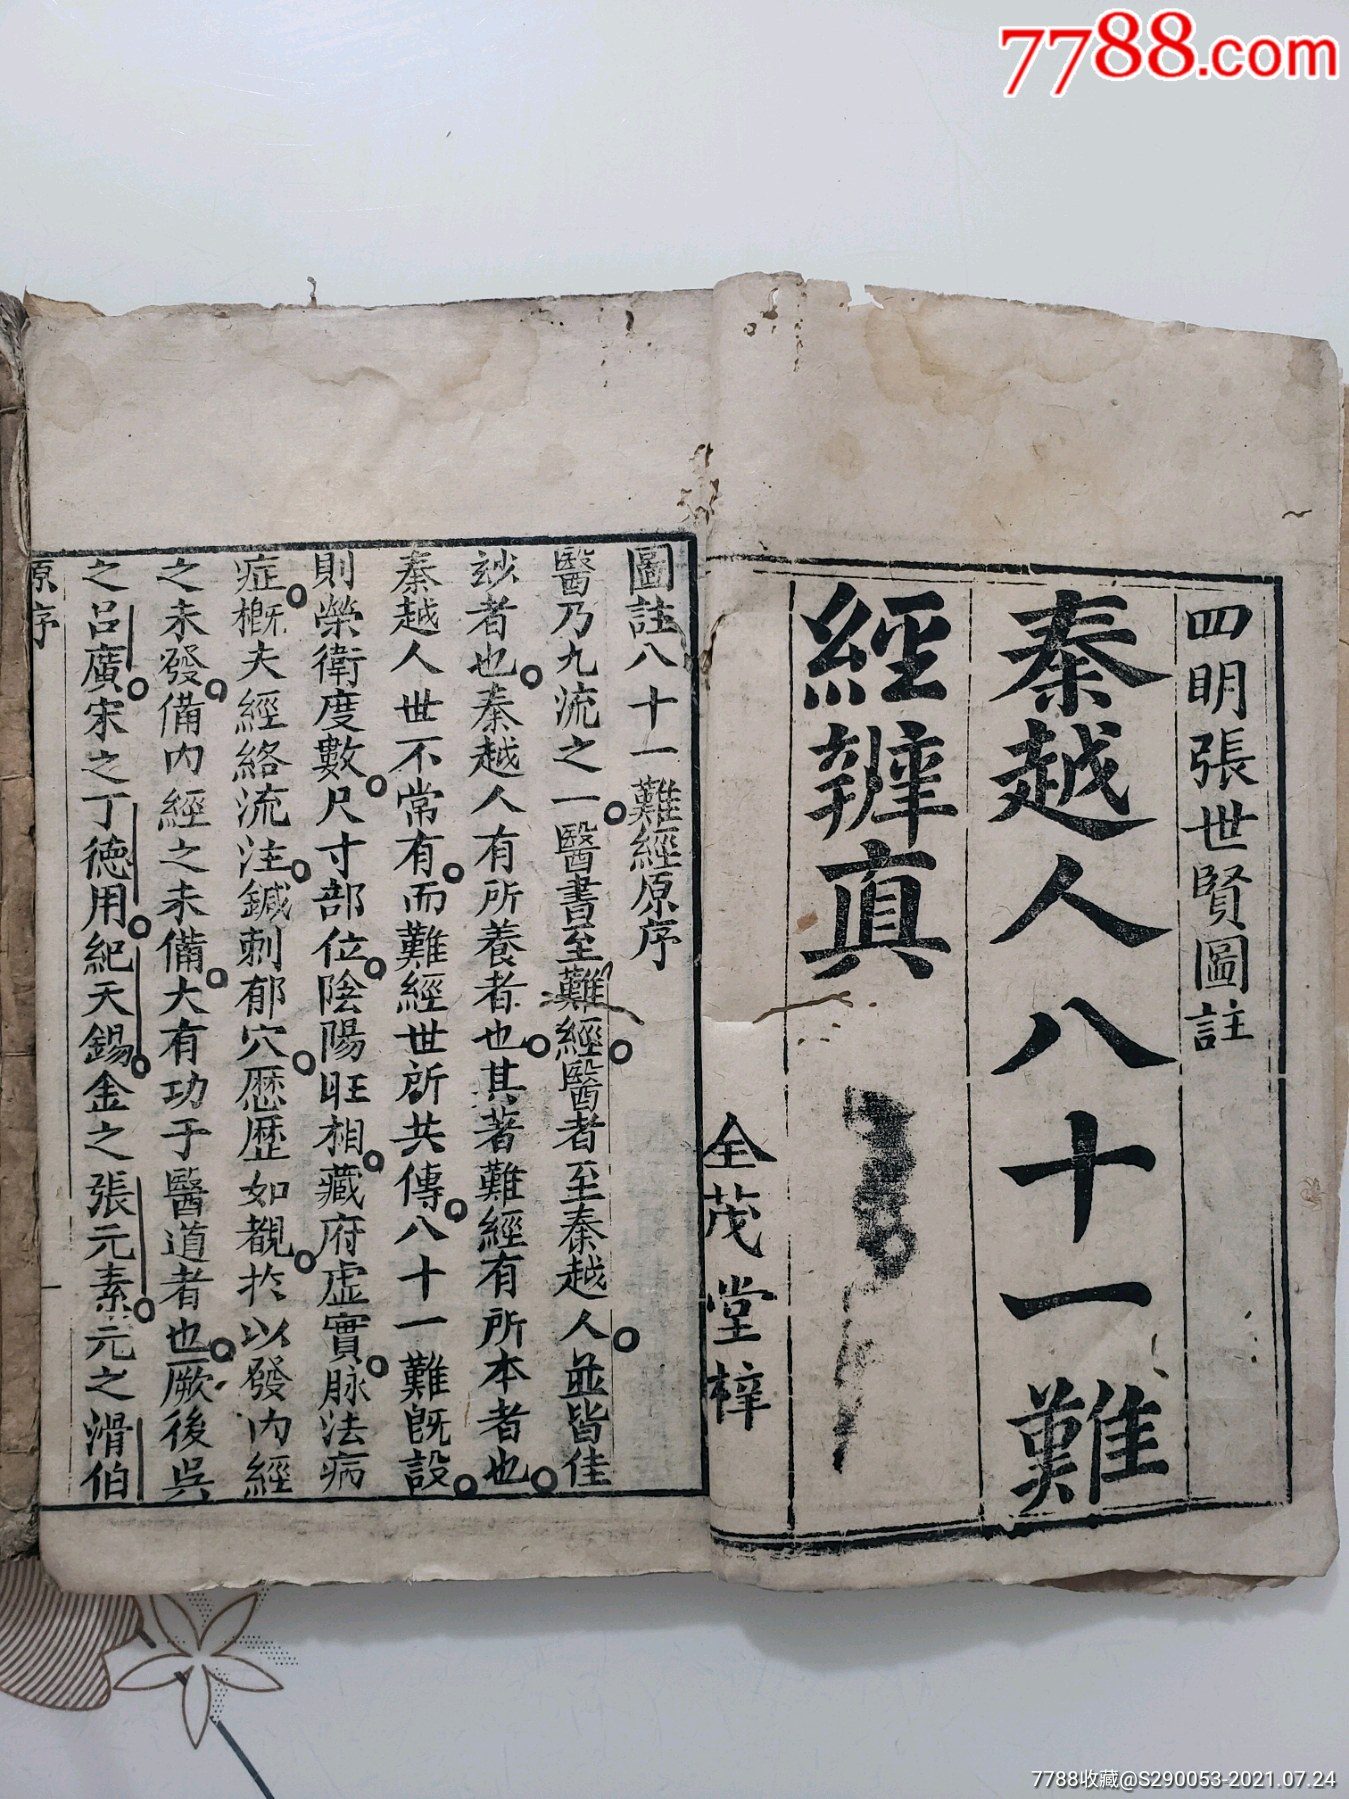 7788.com
四明張世賢圖註
秦越人八十一難
經辨真
全茂堂梓
圖註八十一難經原序
醫乃九流之一醫書至難經醫者至秦越人並皆佳
玅者也秦越人有所養者也其著難經有所本者也
秦越人世不常有而難經世所共傳八十一難既設
則榮衛度數尺寸部位陰陽旺相藏府虛實脉法病
症槪夫經絡流注鍼刺郁穴歷歷如覩於以發內經
之未發備內經之未備大有功于醫道者也厥後吳
之呂廣宋之丁德用紀天錫金之張元素元之滑伯
原序
7788收藏@S290053-2021.07.24